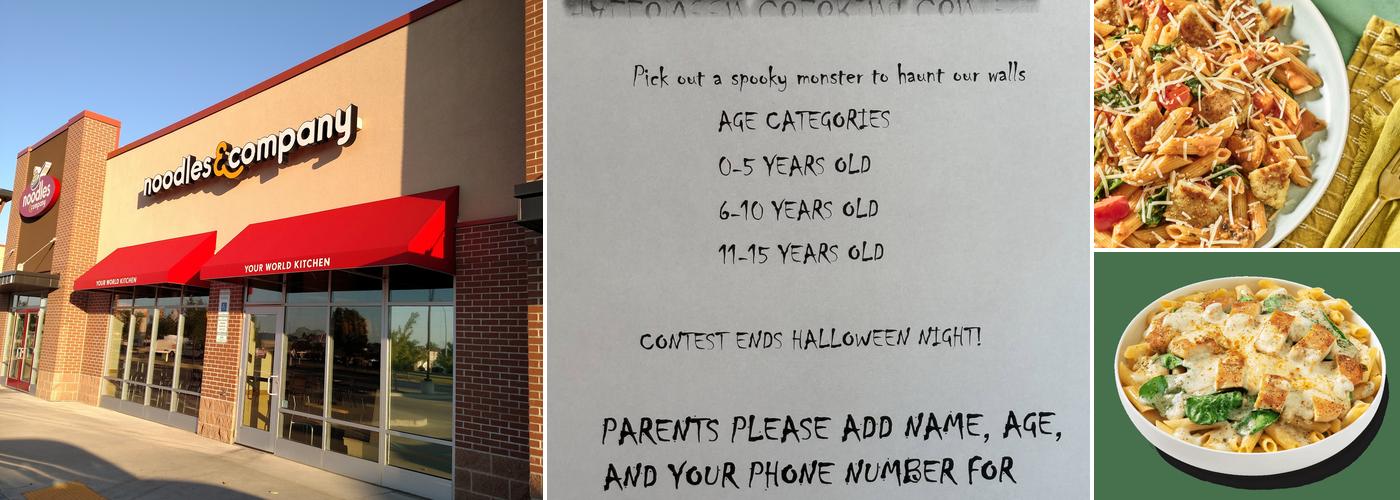 noodles&company
noodles
&company
YOUR WORLD KITCHEN
YOUR WORLD KITCHEN
HALLOWEEN COLORING CONTEST
Pick out a spooky monster to haunt our walls
AGE CATEGORIES
0-5 YEARS OLD
6-10 YEARS OLD
11-15 YEARS OLD
CONTEST ENDS HALLOWEEN NIGHT!
PARENTS PLEASE ADD NAME, AGE,
AND YOUR PHONE NUMBER FOR